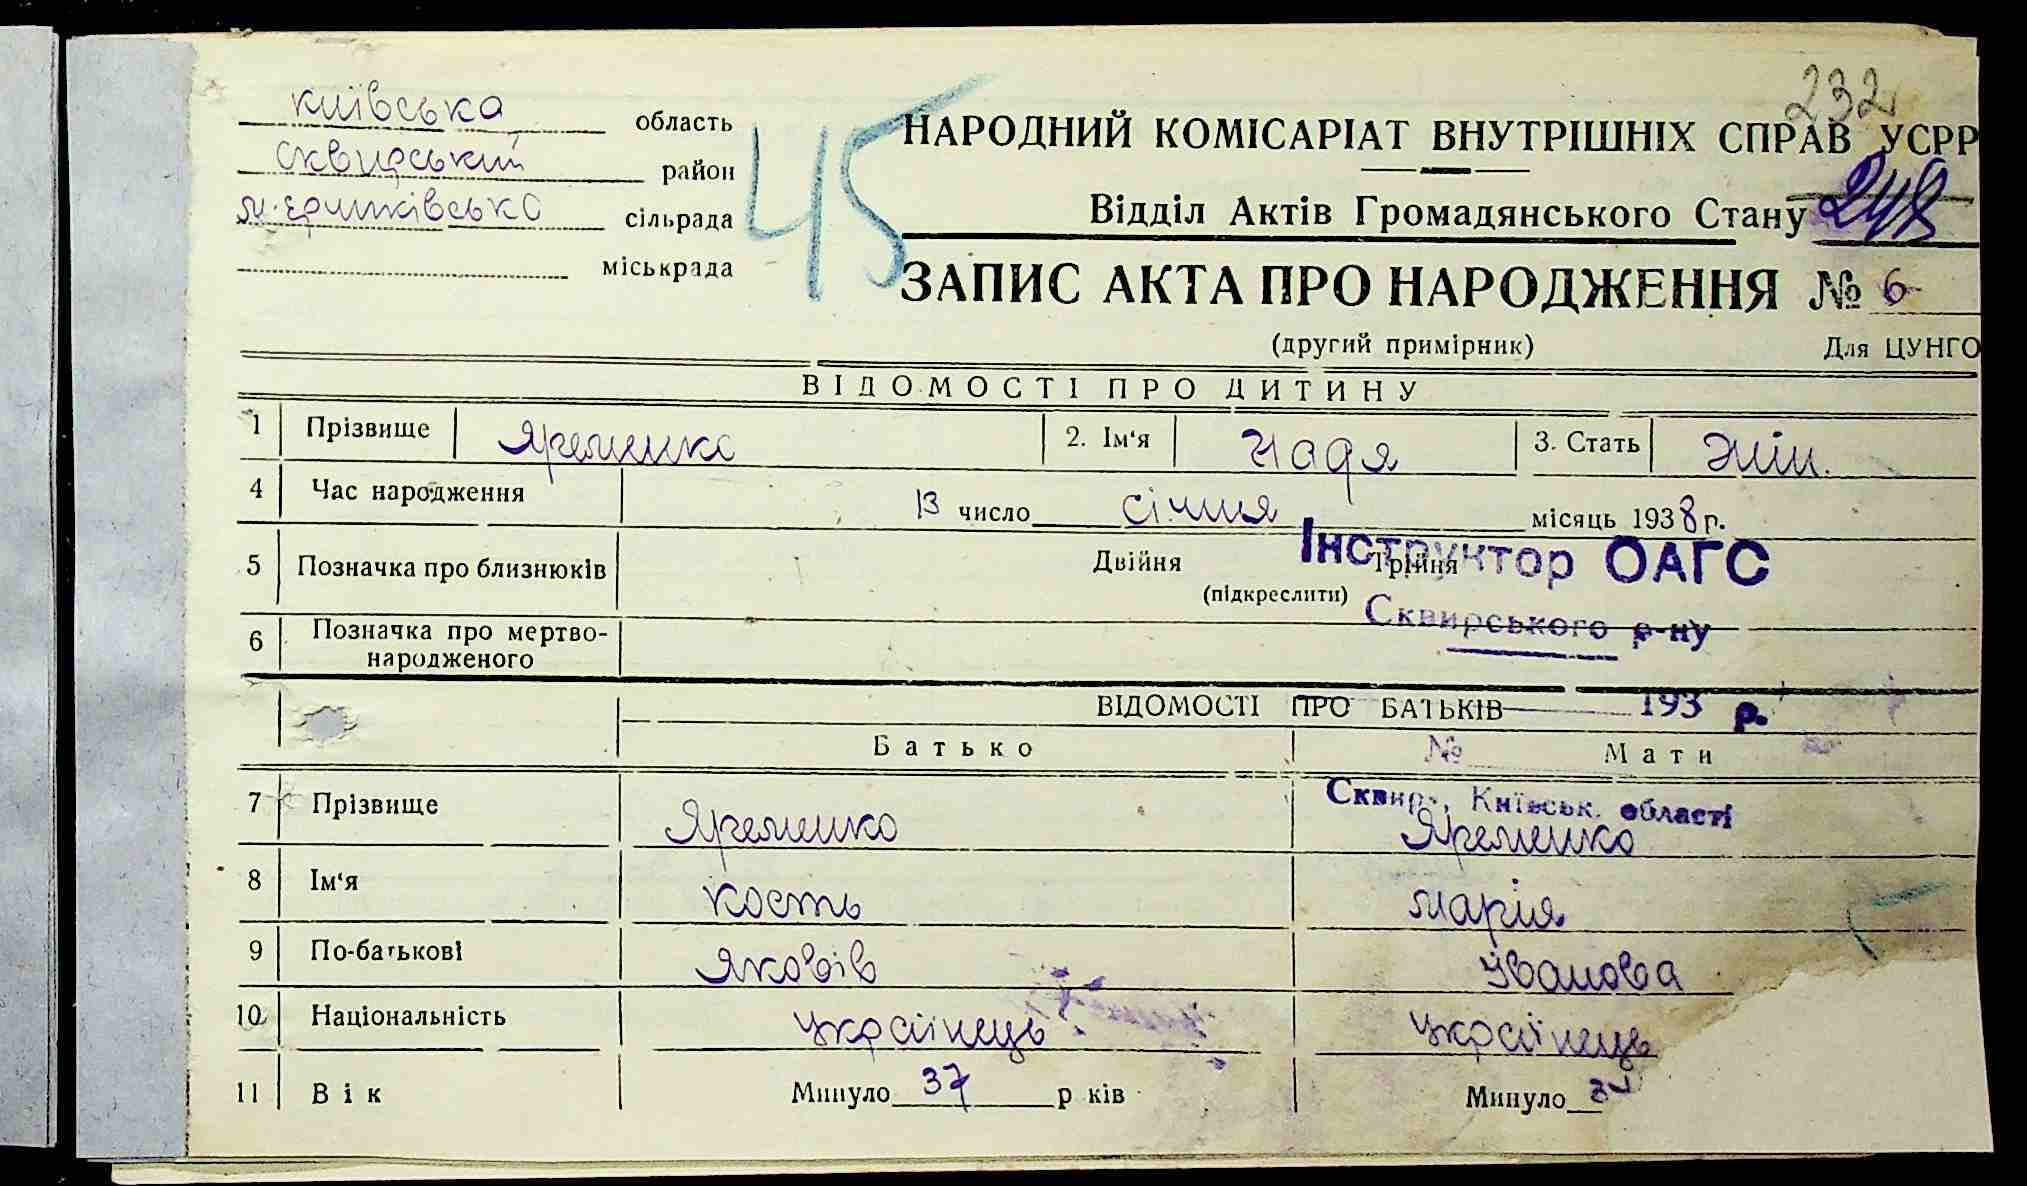 232
Київська область
Сквирський район
М. Єрчиківсько сільрада
міськрада
45
НАРОДНИЙ КОМІСАРІАТ ВНУТРІШНІХ СПРАВ УСРР
Відділ Актів Громадянського Стану 248
ЗАПИС АКТА ПРО НАРОДЖЕННЯ № 6
(другий примірник) Для ЦУНГО
ВІДОМОСТІ ПРО ДИТИНУ
1 Прізвище Яременко 2. Ім'я Надя 3. Стать Жін.
4 Час народження 13 число січня місяць 1938 р.
5 Позначка про близнюків Двійня Трійня
(підкреслити)
Інструктор ОАГС
Сквирського р-ну
6 Позначка про мертво-
народженого
193 р.
ВІДОМОСТІ ПРО БАТЬКІВ
Батько Мати
№
Сквир, Київськ. області
7 Прізвище Яременко Яременко
8 Ім'я Кость Марія
9 По-батькові Яковів Іванова
10 Національність українець українець
11 Вік Минуло 37 років Минуло